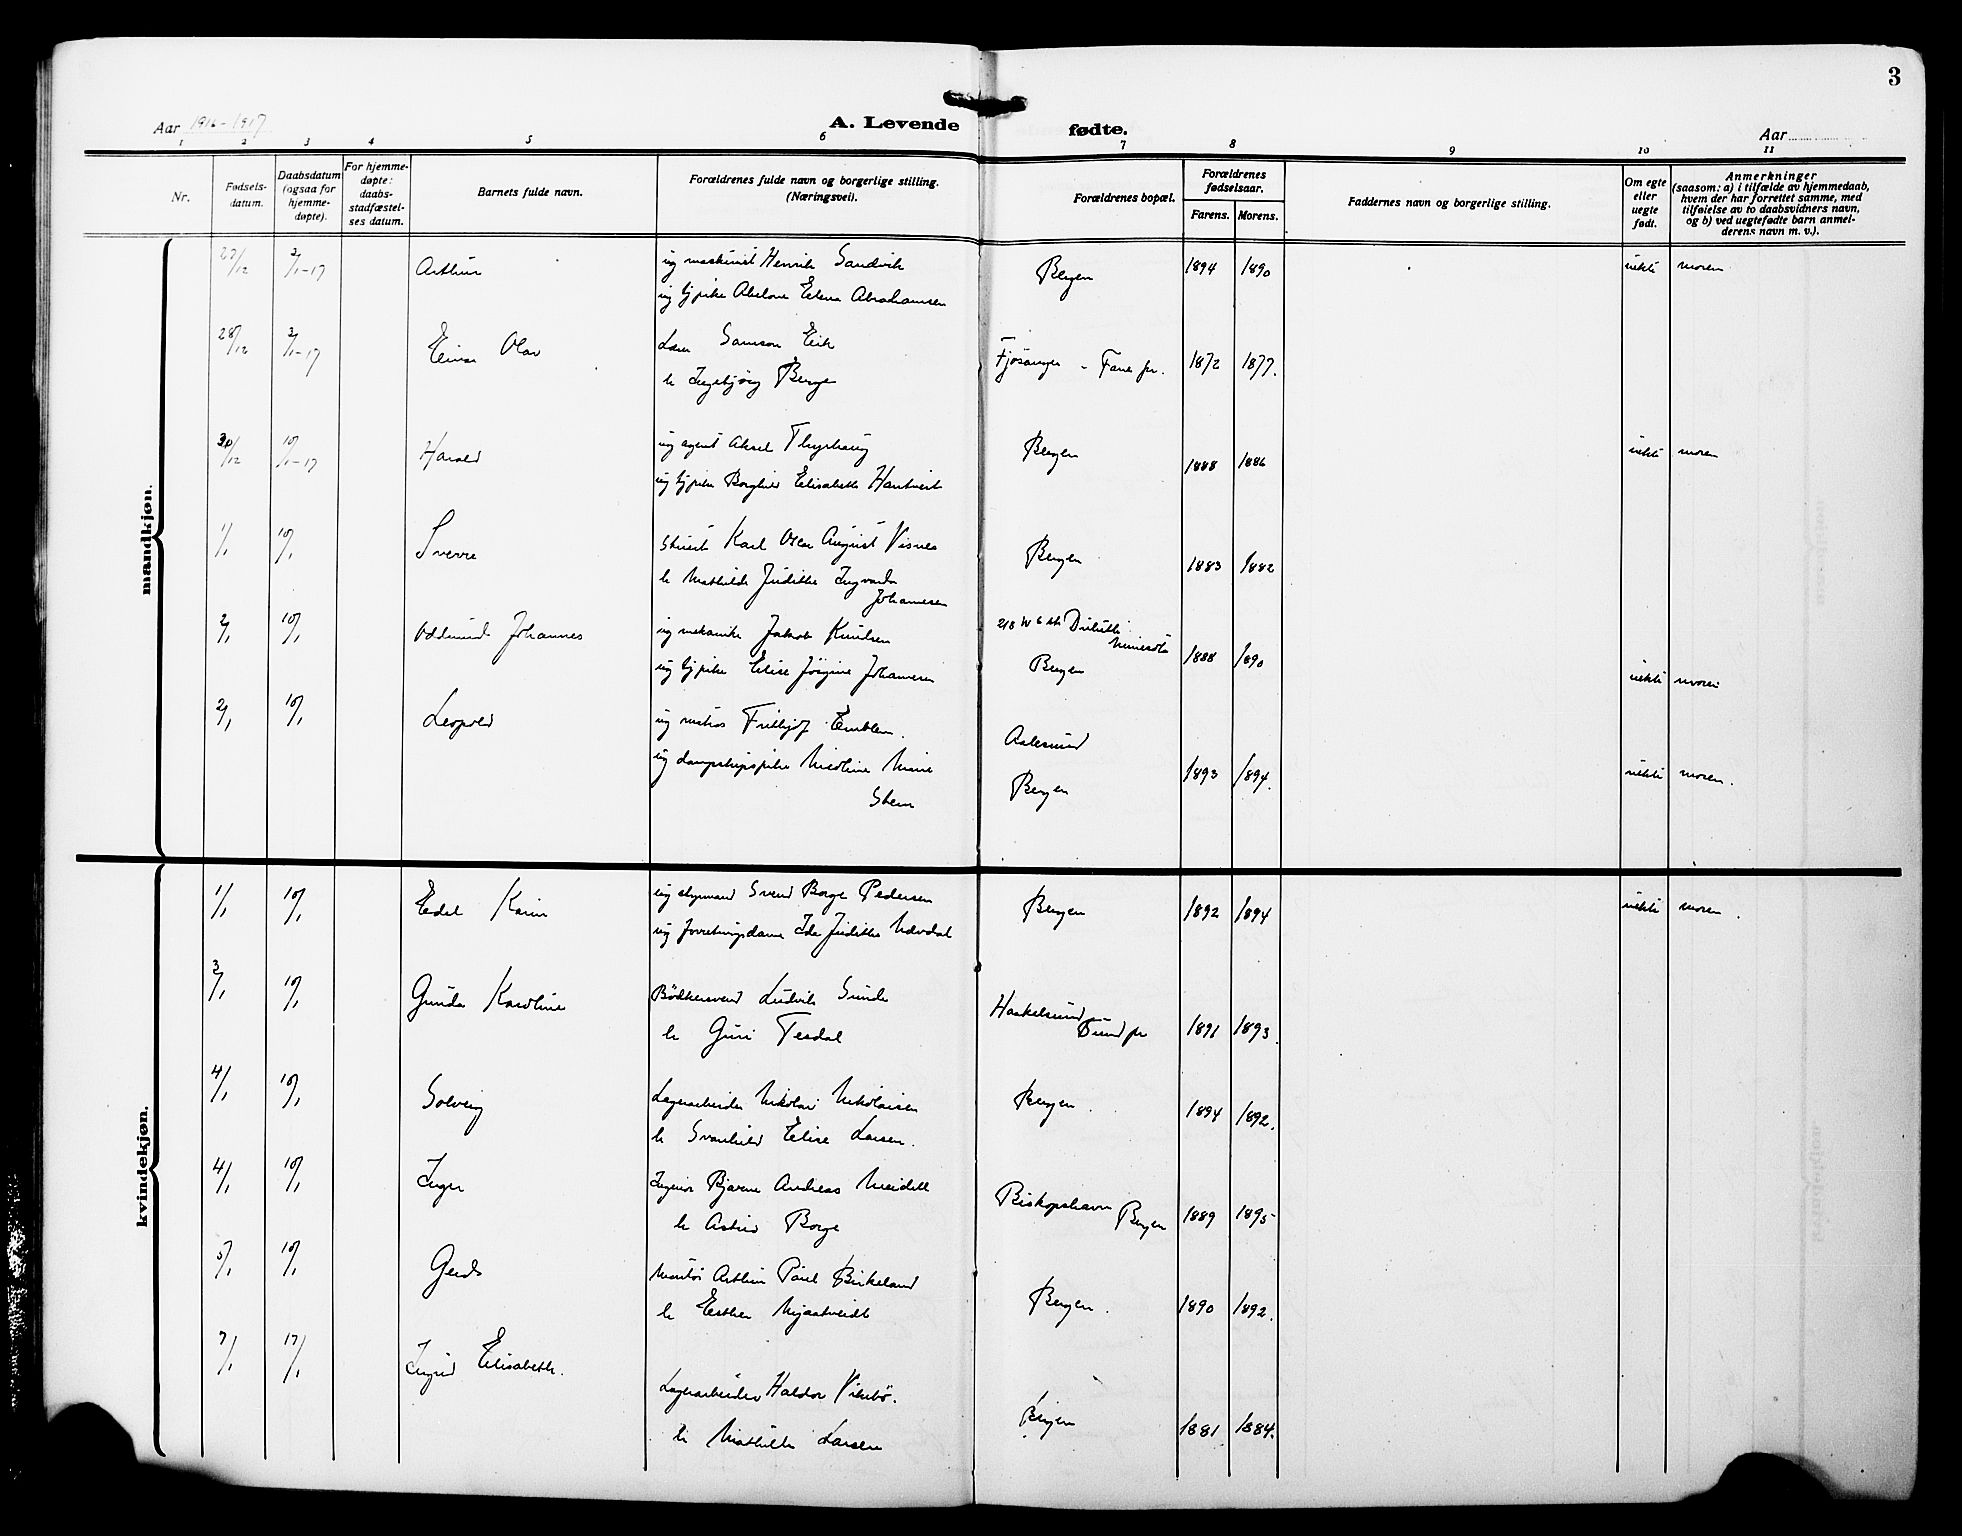 3
Aar 1916-1917
A. Levende fødte.
Aar
1 2 3 4 5 6 7 8 9 10 11
Nr.
Fødsels-
datum.
Daabsdatum
(ogsaa for
hjemme-
døpte).
For hjemme-
døpte:
daabs-
stadfæstel-
ses datum.
Barnets fulde navn.
Forældrenes fulde navn og borgerlige stilling.
(Næringsvei).
Forældrenes bopæl.
Forældrenes
fødselsaar.
Farens. Morens.
Faddernes navn og borgerlige stilling.
Om egte
eller
uegte
født.
Anmerkninger
(saasom: a) i tilfælde av hjemmedaab,
hvem der har forrettet samme, med
tilføielse av to daabsvidners navn,
og b) ved uegtefødte barn anmel-
derens navn m. v.).
mandkjøn.
27/12 3/1-17 Arthur ug maskinist Henrik Sandvik Bergen 1894 1890 uekte moren
ug tjpike Abelone Elena Abrahamsen
28/12 3/1-17 Einar Olav Samson Eik Fjøsanger - Fane pr. 1872 1877.
h Ingebjørg Berge
30/12 10/1-17 Harald ug agent Aksel Bergen 1888 1886 uekte moren
ug tjpike Borghild Elisabeth Hantveit
1/1 10/1 Sverre Stuert Karl Oscar August Visnes Bergen 1883 1882
h Mathilde Judithe Ingvarda
Johannesen
2/1 10/1 Oddmund Johannes ug mekanike Jakob Knudsen 218 W 6 str Duluth
Minesota
ug tjpike Elise Jørgine Johannesen Bergen 1888 1890 uekte moren
2/1 10/1 Leopold ug matros Fridtjof Emblem. Aalesund
ug dampskipspike Nicoline Marie Bergen 1893 1894. uekte moren.
Steen
kvindekjøn.
1/1 10/1 Edel Karin ug styrmand Svend Borge Pedersen Bergen 1892 1894 uekte moren.
ug forretningsdame Ida Judithe
3/1 10/1 Gunda Karoline Bødkersvend Ludvik Sunde Haakelsund
Sund pr 1891 1893.
h Guri Tesdal
4/1 10/1 Solveig Lagerarbeider Nikolai Nikolaisen Bergen. 1894 1892.
h Svanhild Elise Larsen.
4/1 10/1 Inger Ingeniør Bjarne Andreas Meidell Biskopshavn
Bergen 1889 1895
h Astrid Borge
5/1 10/1 Gerda Arthur Paul Birkeland Bergen. 1890 1892.
h Esther Mjaatveidt
7/1 17/1 Ingrid Elisabeth. Lagerarbeider Haldor Vikebø. Bergen 1881 1884.
h Mathilde Larsen